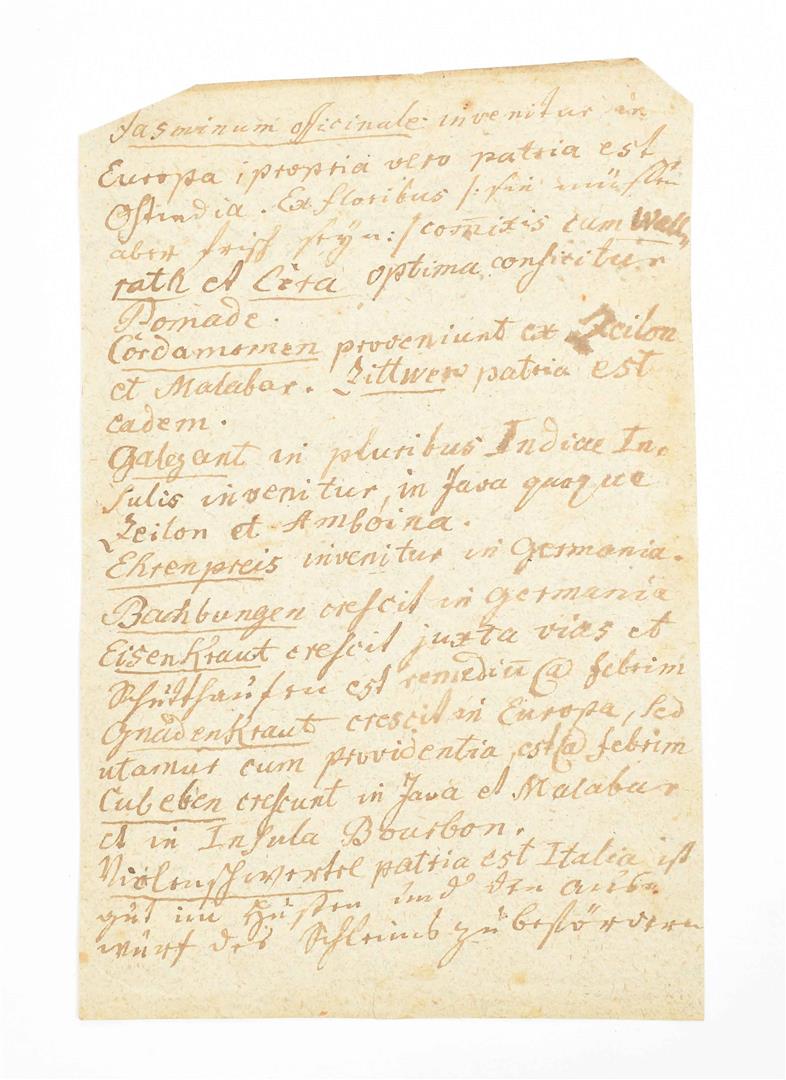 Jasminum officinale invenitur in
Europa, propria vero patria est
Ostindia. Ex floribus /: sie müssen
aber frisch seyn :/ com̄ixis cum Wall„
rath et Cera optima conficitur
Pomade.
Cordamomen proveniunt ex Zeilon
et Malabar. Zittwer patria est
eadem.
Galegant in pluribus Indiae In„
sulis invenitur, in Java quoque
Zeilon et Amboina.
Ehrenpreis invenitur in Germania.
Bachbungen crescit in Germania
Eisenkraut crescit juxta vias et
Schutthaufen est remediū @ febrim
Gnadenkraut crescit in Europa, sed
utamur cum providentia, est @ febrim
Cubeben crescunt in Java et Malabar
et in Insula Bourbon.
Violenschwertel patria est Italia ist
gut im Husten und den aus„
wurf des Schleims zu befördern